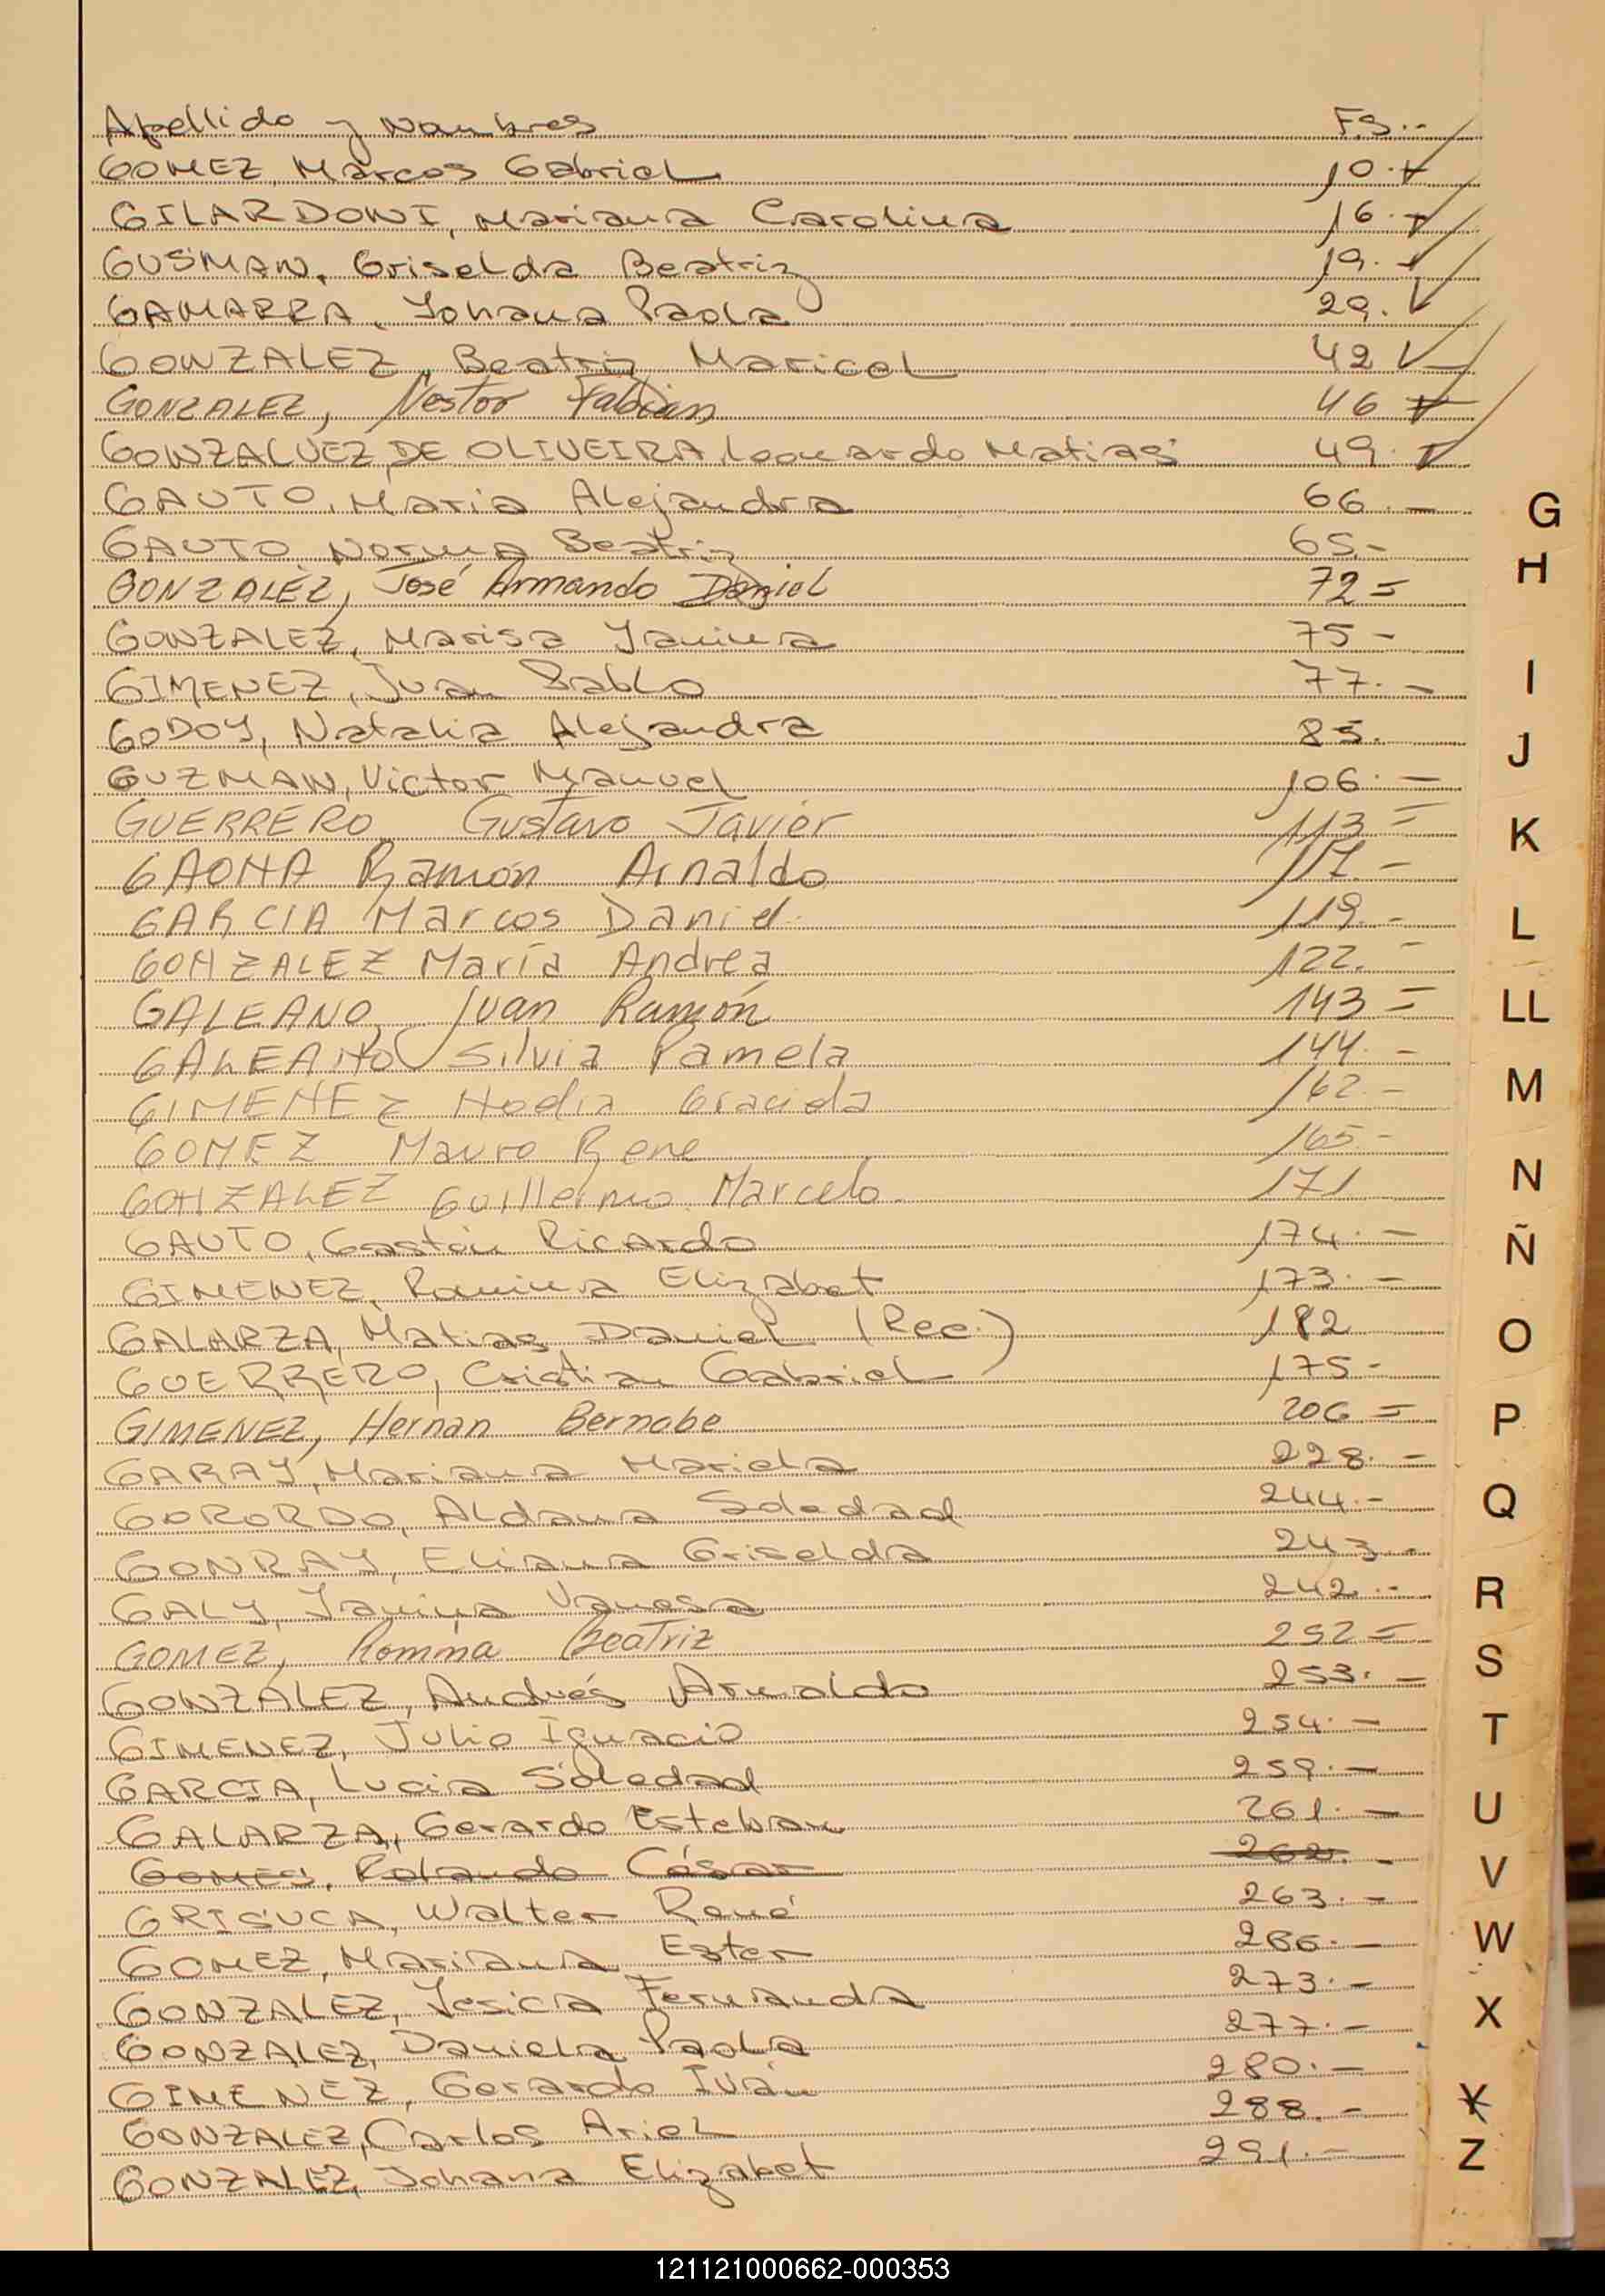 Apellido y Nombres FS.-
GOMEZ, Marcos Gabriel 10.-
GILARDONI, Mariana Carolina 16.-
GUSMAN, Griselda Beatriz 19.-
GAMARRA, Johana Paola 29.
GONZALEZ, Beatriz Maricel 42
GONZALEZ, Nestor Fabian 46
GONZALVEZ DE OLIVEIRA, Leonardo Matias 49.
GAUTO, Maria Alejandra 66.-
GAUTO, Norma Beatriz 65.-
GONZALEZ, José Armando Daniel 72=
GONZALEZ, Marisa Yanina 75-
GIMENEZ, Juan Pablo 77.-
GODOY, Natalia Alejandra 85.
GUZMAN, Victor Manuel 106.-
GUERRERO, Gustavo Javier 113=
GAONA Ramón Arnaldo 117.-
GARCIA Marcos Daniel. 119.-
GONZALEZ María Andrea 122.-
GALEANO, Juan Ramón 143=
GALEANO Silvia Pamela 144.-
GIMENEZ Nodia Graciela 162.-
GOMEZ Mauro Rene 165.-
GONZALEZ Guillermo Marcelo. 171
GAUTO, Gastón Ricardo 174.-
GIMENEZ, Romina Elizabet 173.-
GALARZA, Matias Daniel (Rec.) 182
GUERRERO, Cristian Gabriel 175-
GIMENEZ, Hernan Bernabe 206=
GARAY, Mariana Mariela 228.-
GORORDO, Aldana Soledad 244.-
GONRAY, Eliana Griselda 243.-
GALY, Yanina Vanesa 242.-
GOMEZ, Romina Beatriz 252=
GONZALEZ, Andrés Arnaldo 253.-
GIMENEZ, Julio Ignacio 254.-
GARCIA, Lucia Soledad 259.-
GALARZA, Gerardo Esteban 261.-
GOMES, Rolando César 262.-
GRISUCA, Walter René 263.-
GOMEZ, Mariana Ester 266.-
GONZALEZ, Yesica Fernanda 273.-
GONZALEZ, Daniela Paola 277.-
GIMENEZ, Gerardo Iván 280.-
GONZALEZ, Carlos Ariel 288.-
GONZALEZ, Johana Elizabet 291.-
G
H
I
J
K
L
LL
M
N
Ñ
O
P
Q
R
S
T
U
V
W
X
Y
Z
121121000662-000353